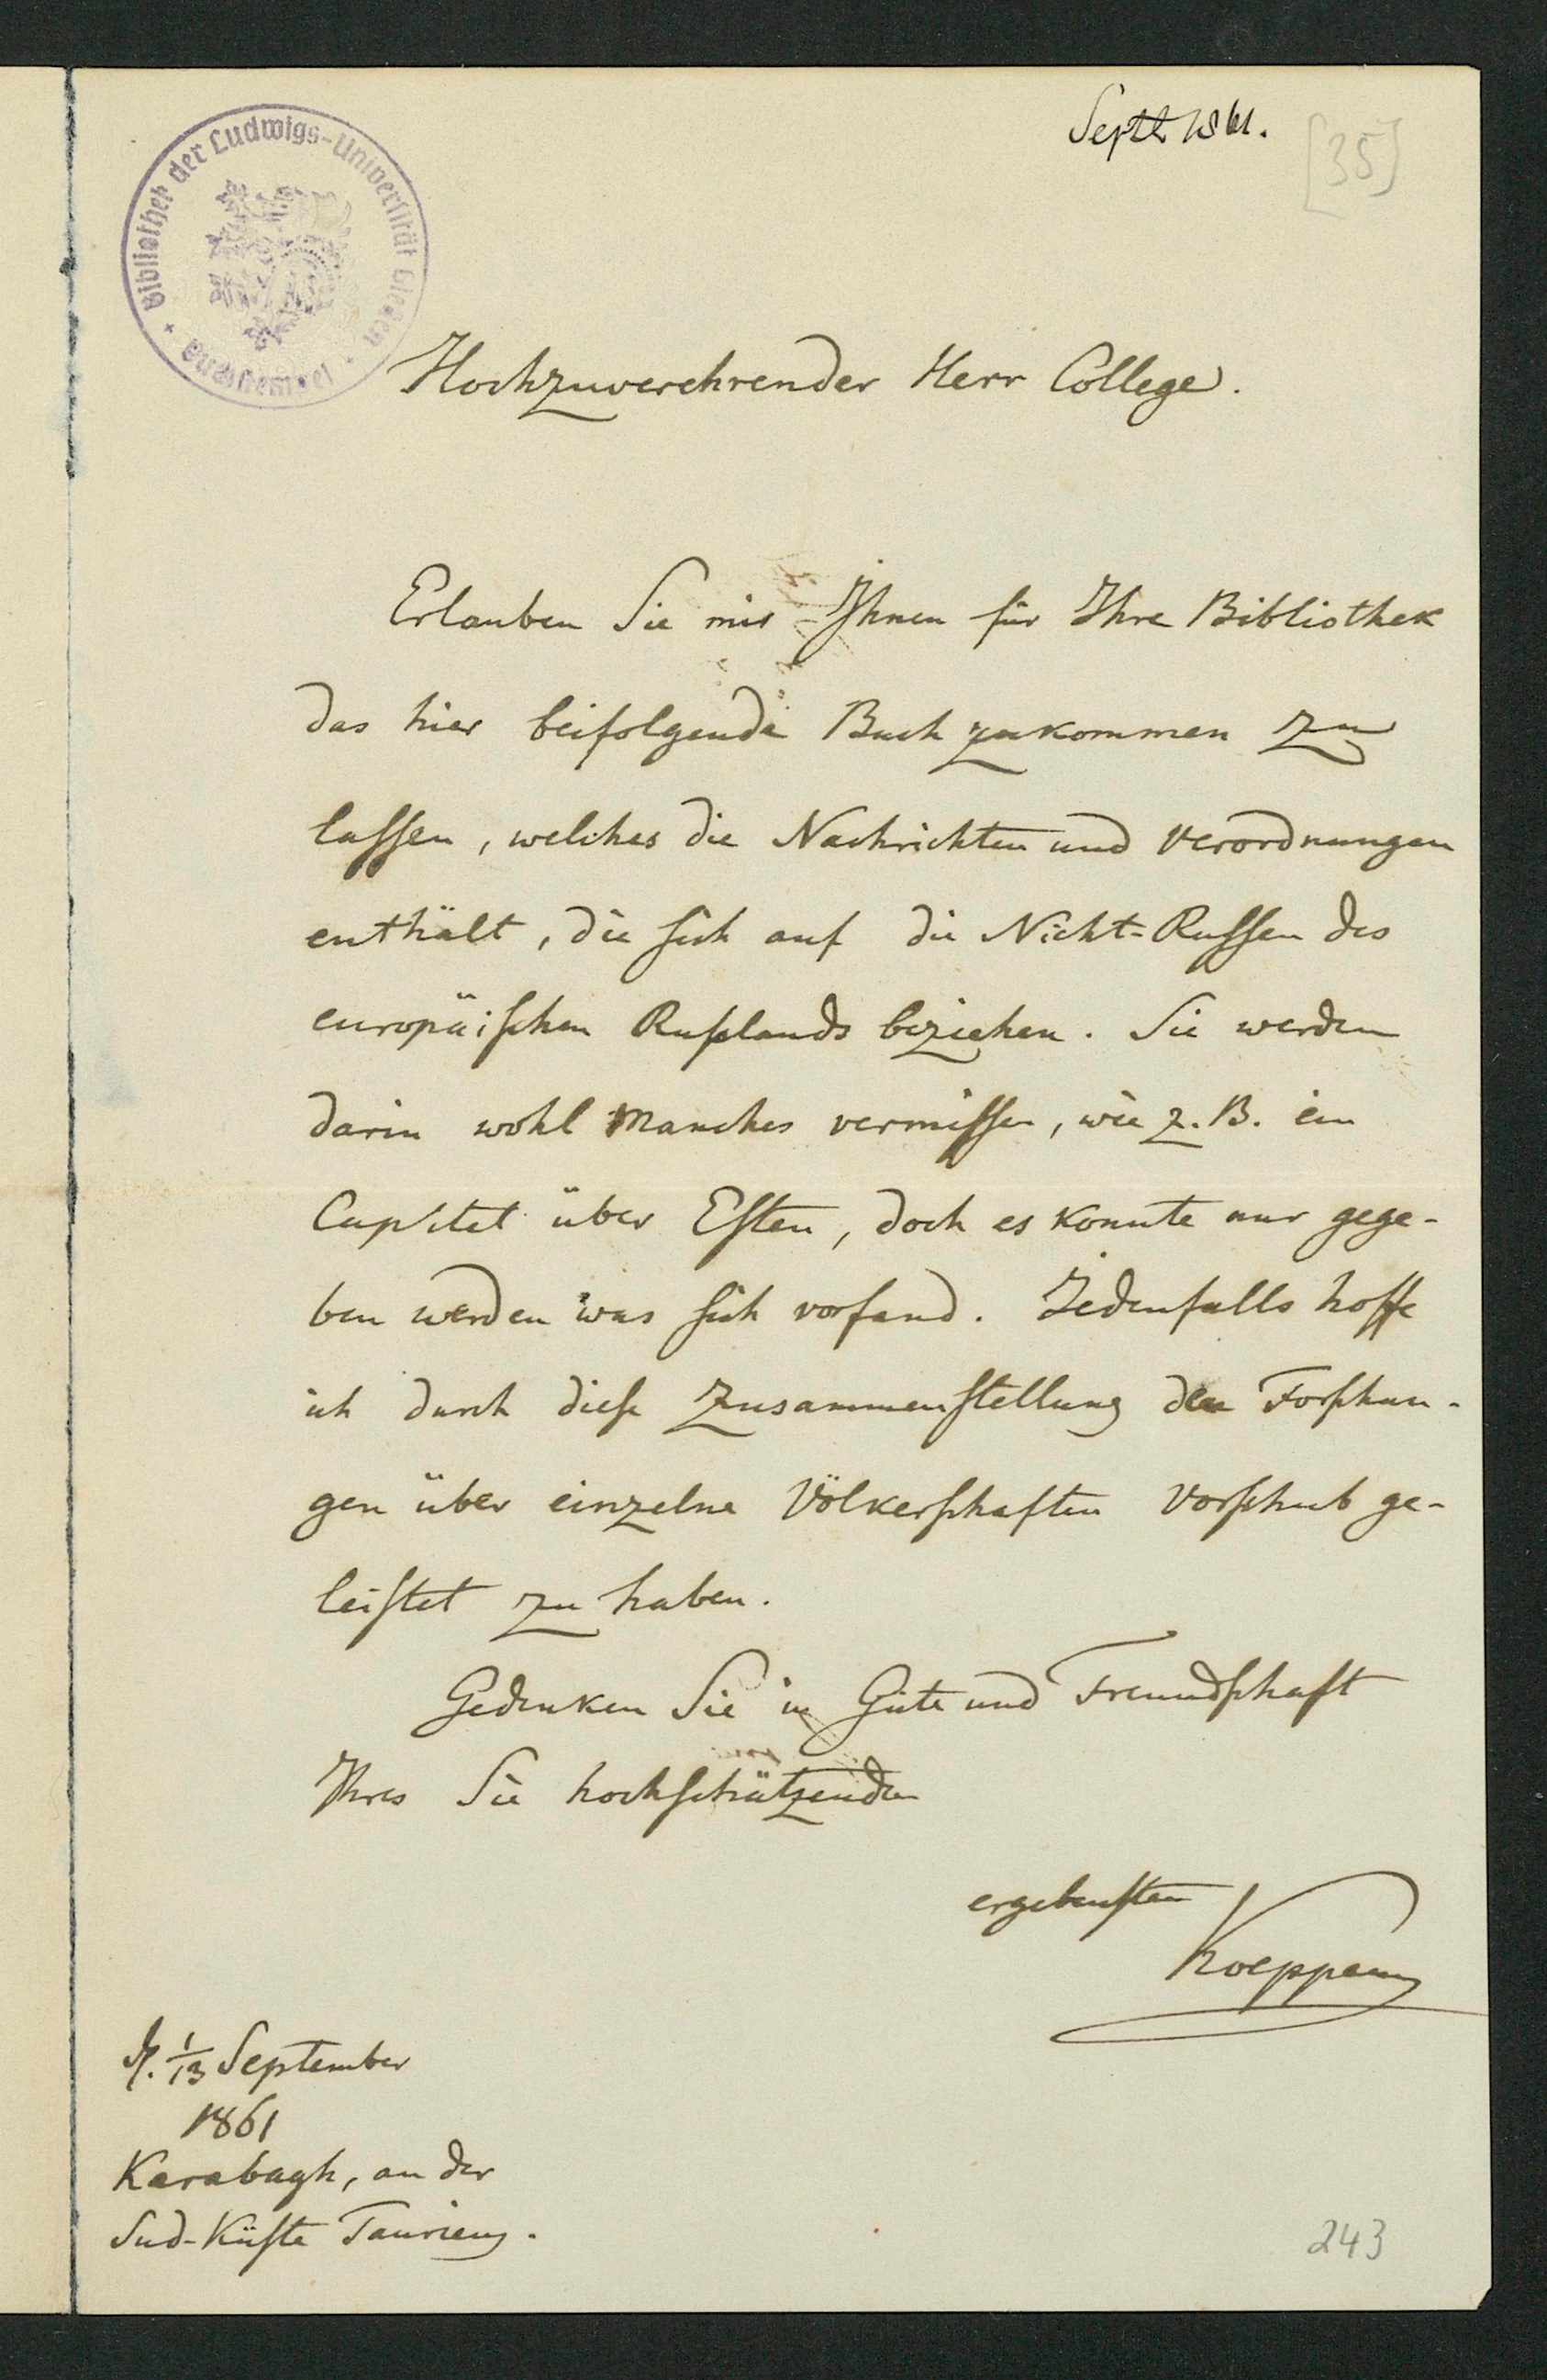 Septr 1861.
[35]
Bibliothek der Ludwigs-Universität Giessen
Buchstempel
Hochzuverehrender Herr College.
Erlauben Sie mir Ihnen für Ihre Bibliothek
das hier beifolgende Buch zukommen zu
lassen, welches die Nachrichten und Verordnungen
enthält, die sich auf die Nicht-Russen des
europäischen Russlands beziehen. Sie werden
darin wohl Manches vermissen, wie z. B. ein
Capitel über Esten, doch es konnte nur gege-
ben werden was sich vorfand. Jedenfalls hoffe
ich durch diese Zusammenstellung den Forschun-
gen über einzelne Völkerschaften Vorschub ge-
leistet zu haben.
Gedenken Sie in Güte und Freundschaft
Ihres Sie hochschätzenden
ergebensten
Koeppen
1/13 September
1861
Karabagh, an der
Süd-Küste Tauriens.
243